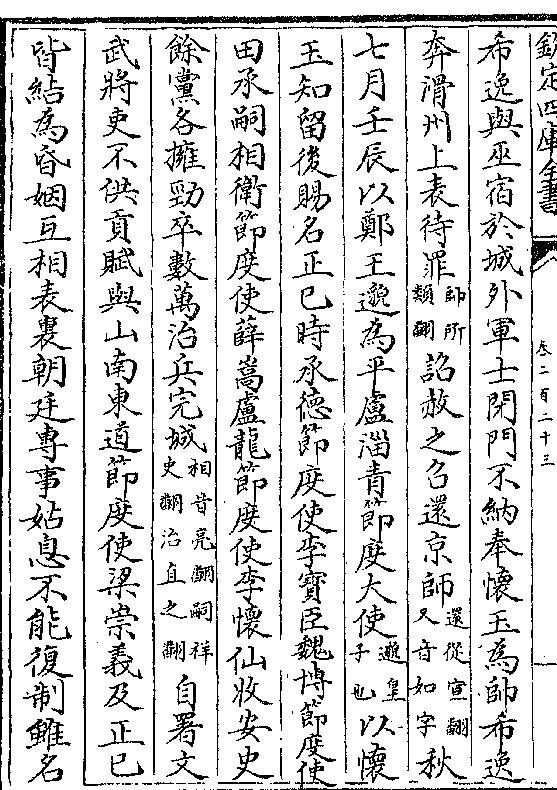 欽定四庫全書
卷二百二十三
希逸與巫宿於城外軍士閉門不納奉懷玉為帥希逸
奔滑州上表待罪帥所類翻詔赦之召還京師還從宣翻又音如字秋
七月壬辰以鄭王邈為平盧淄青節度大使邈皇子也以懷
玉知留後賜名正已時承德節度使李寶臣魏博節度使
田承嗣相衛節度使薛嵩盧龍節度使李懷仙收安史
餘黨各擁勁卒數萬治兵完城相昔亮翻嗣祥吏翻治直之翻自署文
武將吏不供貢賦與山南東道節度使梁崇義及正已
皆結為昏姻互相表裏朝廷專事姑息不能復制雖名